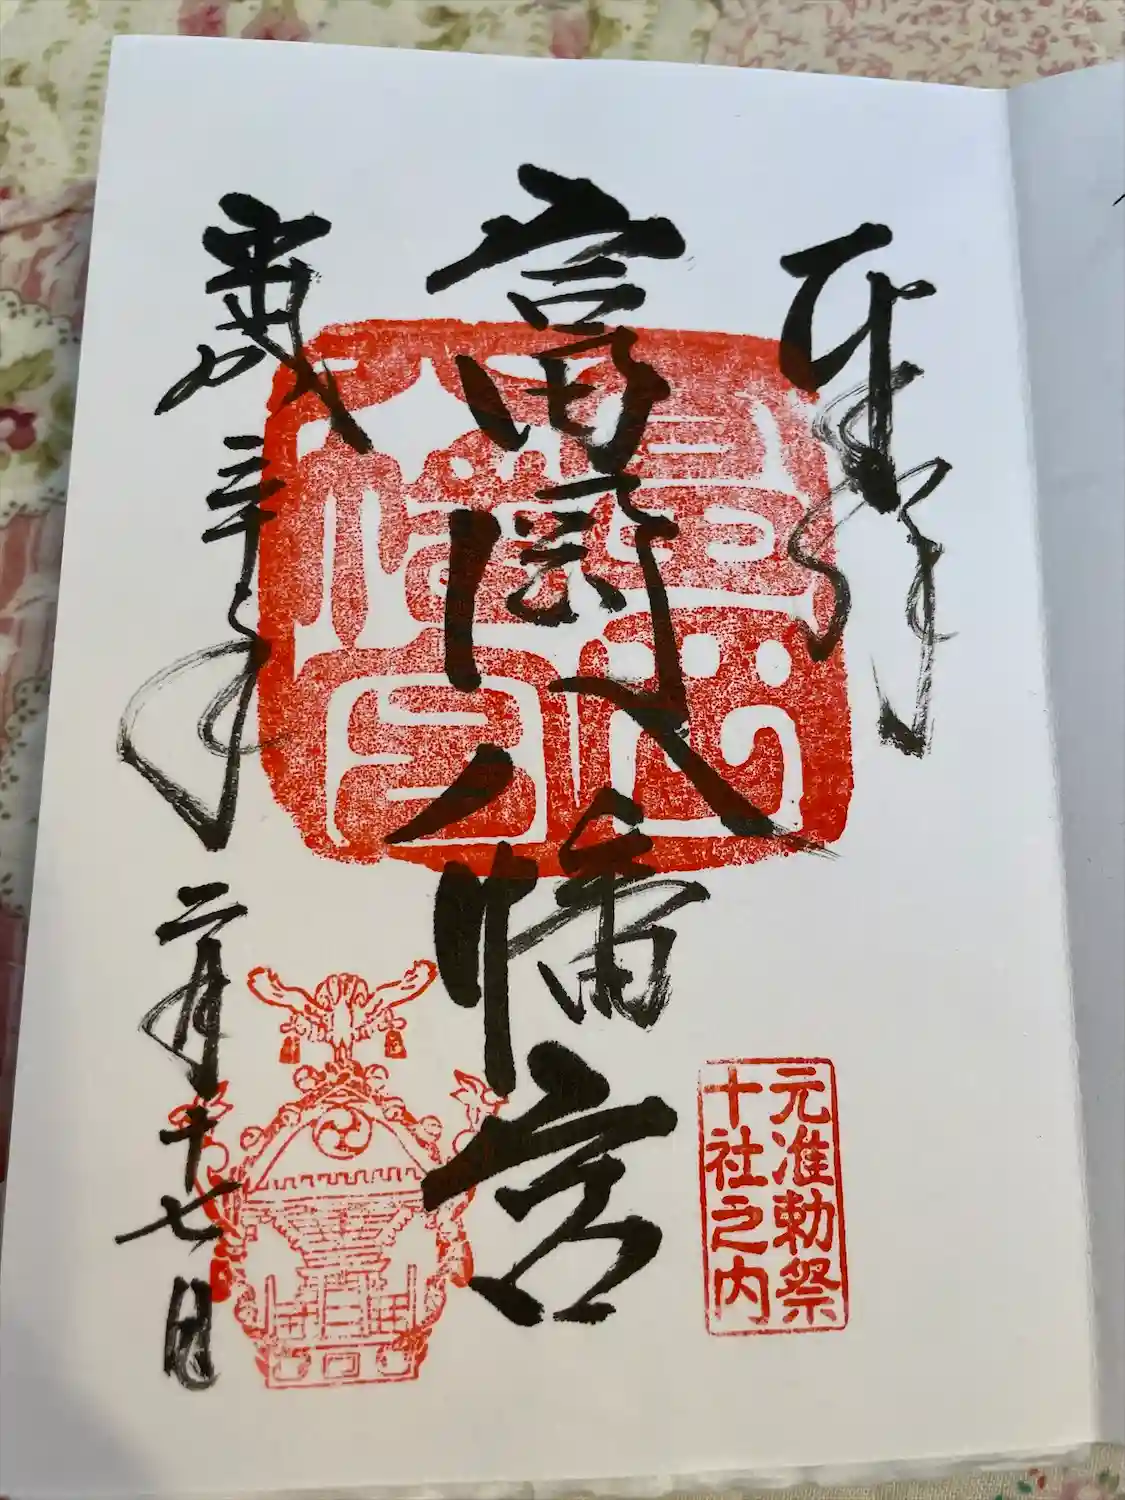 奉拝
富岡八幡宮
富岡
八幡宮
元准勅祭
十社之内
平成三十年二月十七日